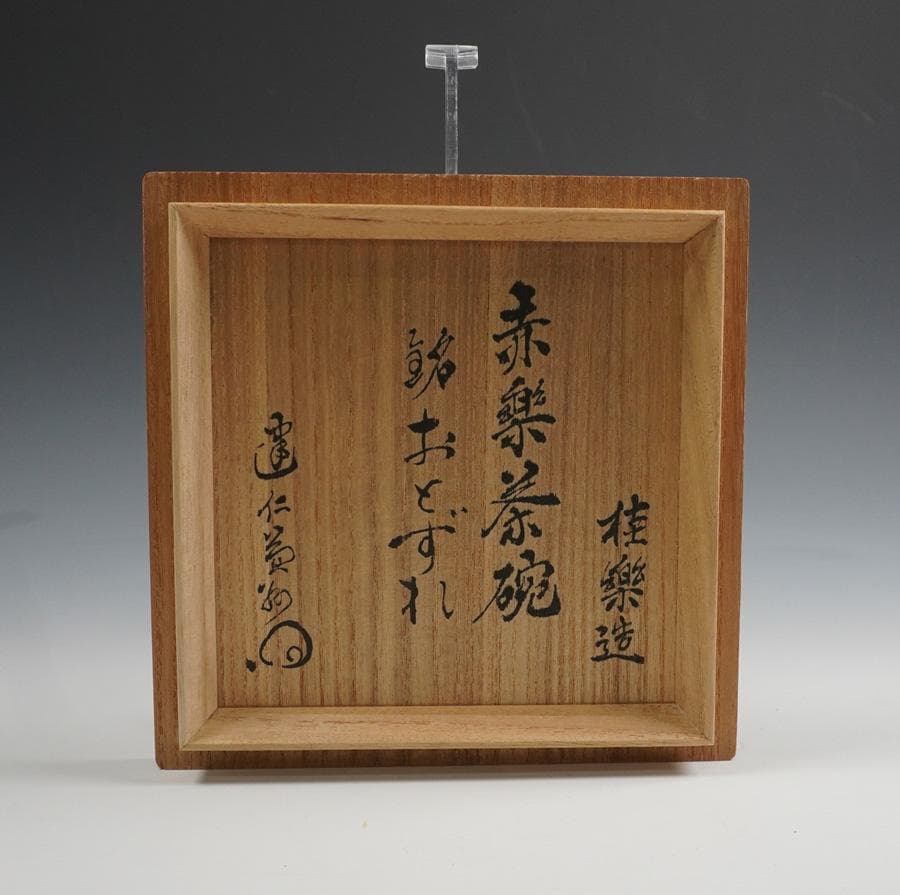 桂樂造
赤樂茶碗
銘おとずれ
建仁益州